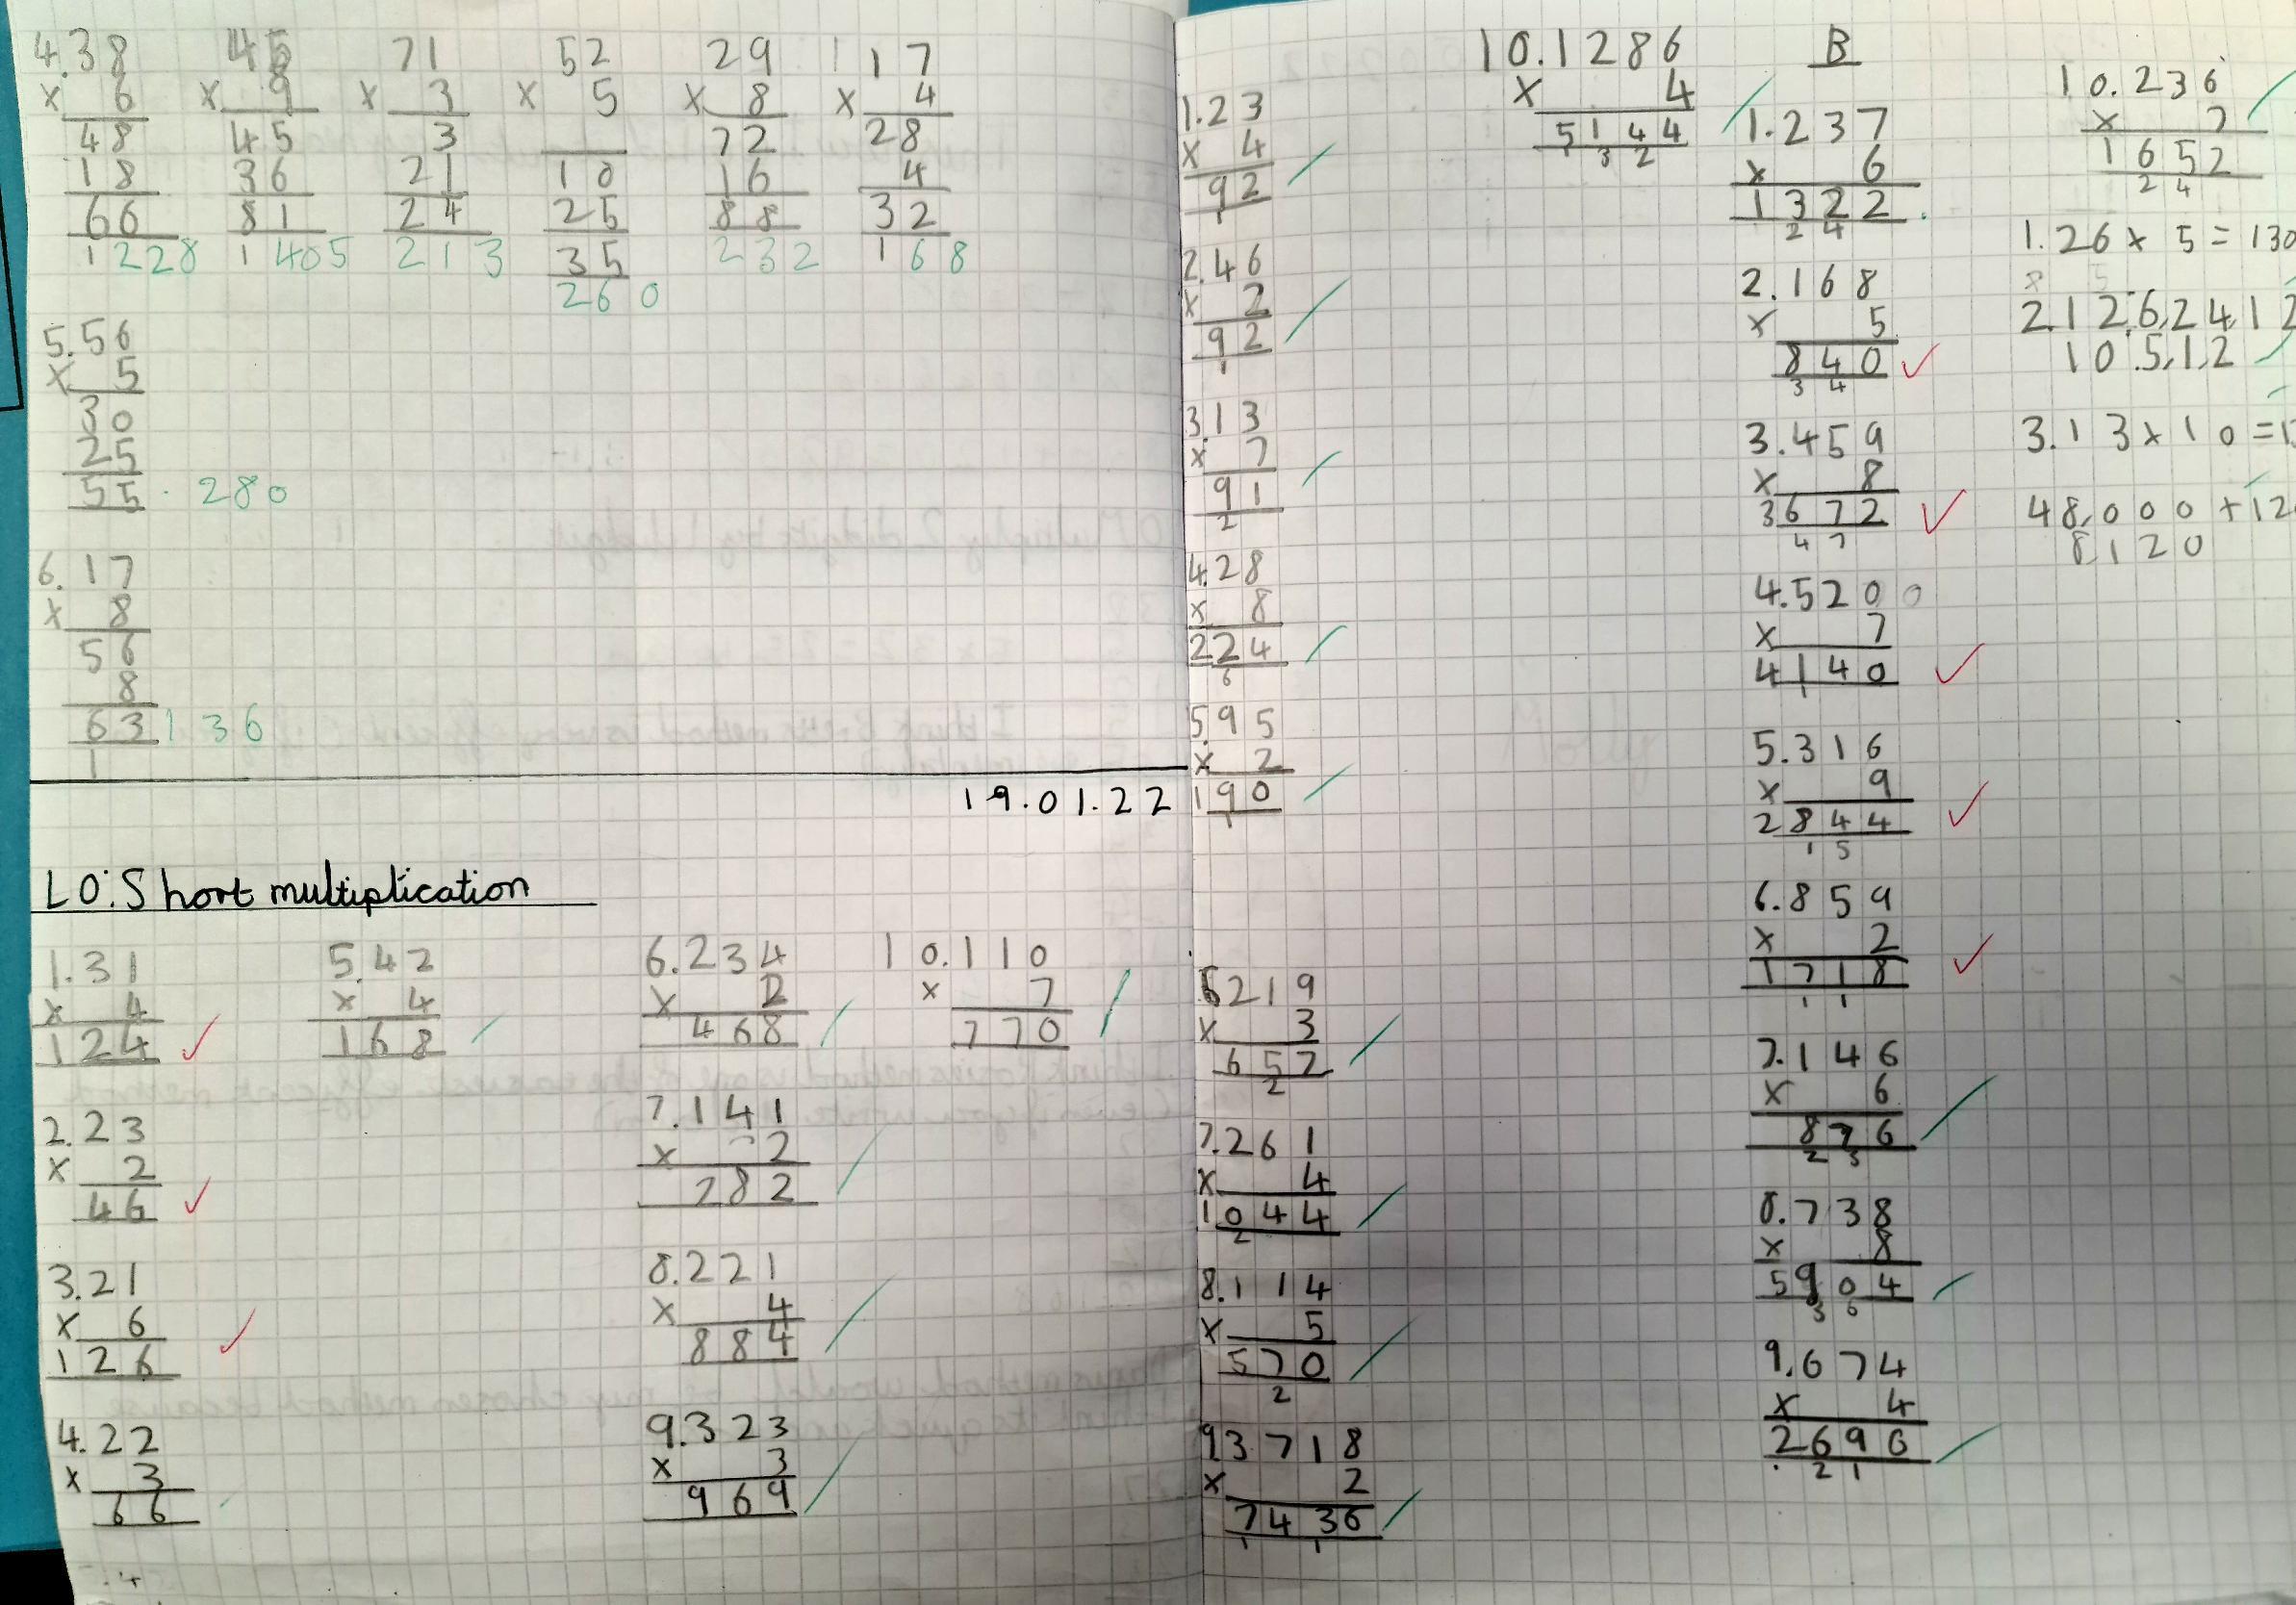 4.38 45 71 52 29 17
x 6 x 9 x 3 x 5 x 8 x 4
48 45 3 10 72 28
18 36 21 25 16 4
66 81 24 35 88 32
1228 1405 213 260 232 168
5.56
x 5
30
25
55 . 280
6.17
x 8
56
8
63 136
1
19.01.22
LO: Short multiplication
1.31
x 4
124
2.23
x 2
46
3.21
x 6
126
4.22
x 3
66
5.42
x 4
168
6.234
x 2
468
7.141
x 2
282
8.221
x 4
884
9.323
x 3
969
10.110
x 7
770
1.23
x 4
92
1
2.46
x 2
92
1
3.13
x 7
91
2
4.28
x 8
224
6
5.95
x 2
190
1
6219
x 3
657
2
7.261
x 4
1044
2
8.114
x 5
570
2
93718
x 2
7436
1 1
10.1286
x 4
5144
1 3 2
B
1.237
x 6
1322
2 4
2.168
x 5
840
3 4
3.459
x 8
3672
4 7
4.5200
x 7
4140
5.316
x 9
2844
1 5
6.859
x 2
1718
1 1
7.146
x 6
876
2 3
8.738
x 8
5904
3 6
9.674
x 4
2696
2 1
10.236
x 7
1652
2 4
1.26 x 5 = 130
2.12,6,24,12
10.5,1,2
3.13 x 10 =
48,000 + 12
8120